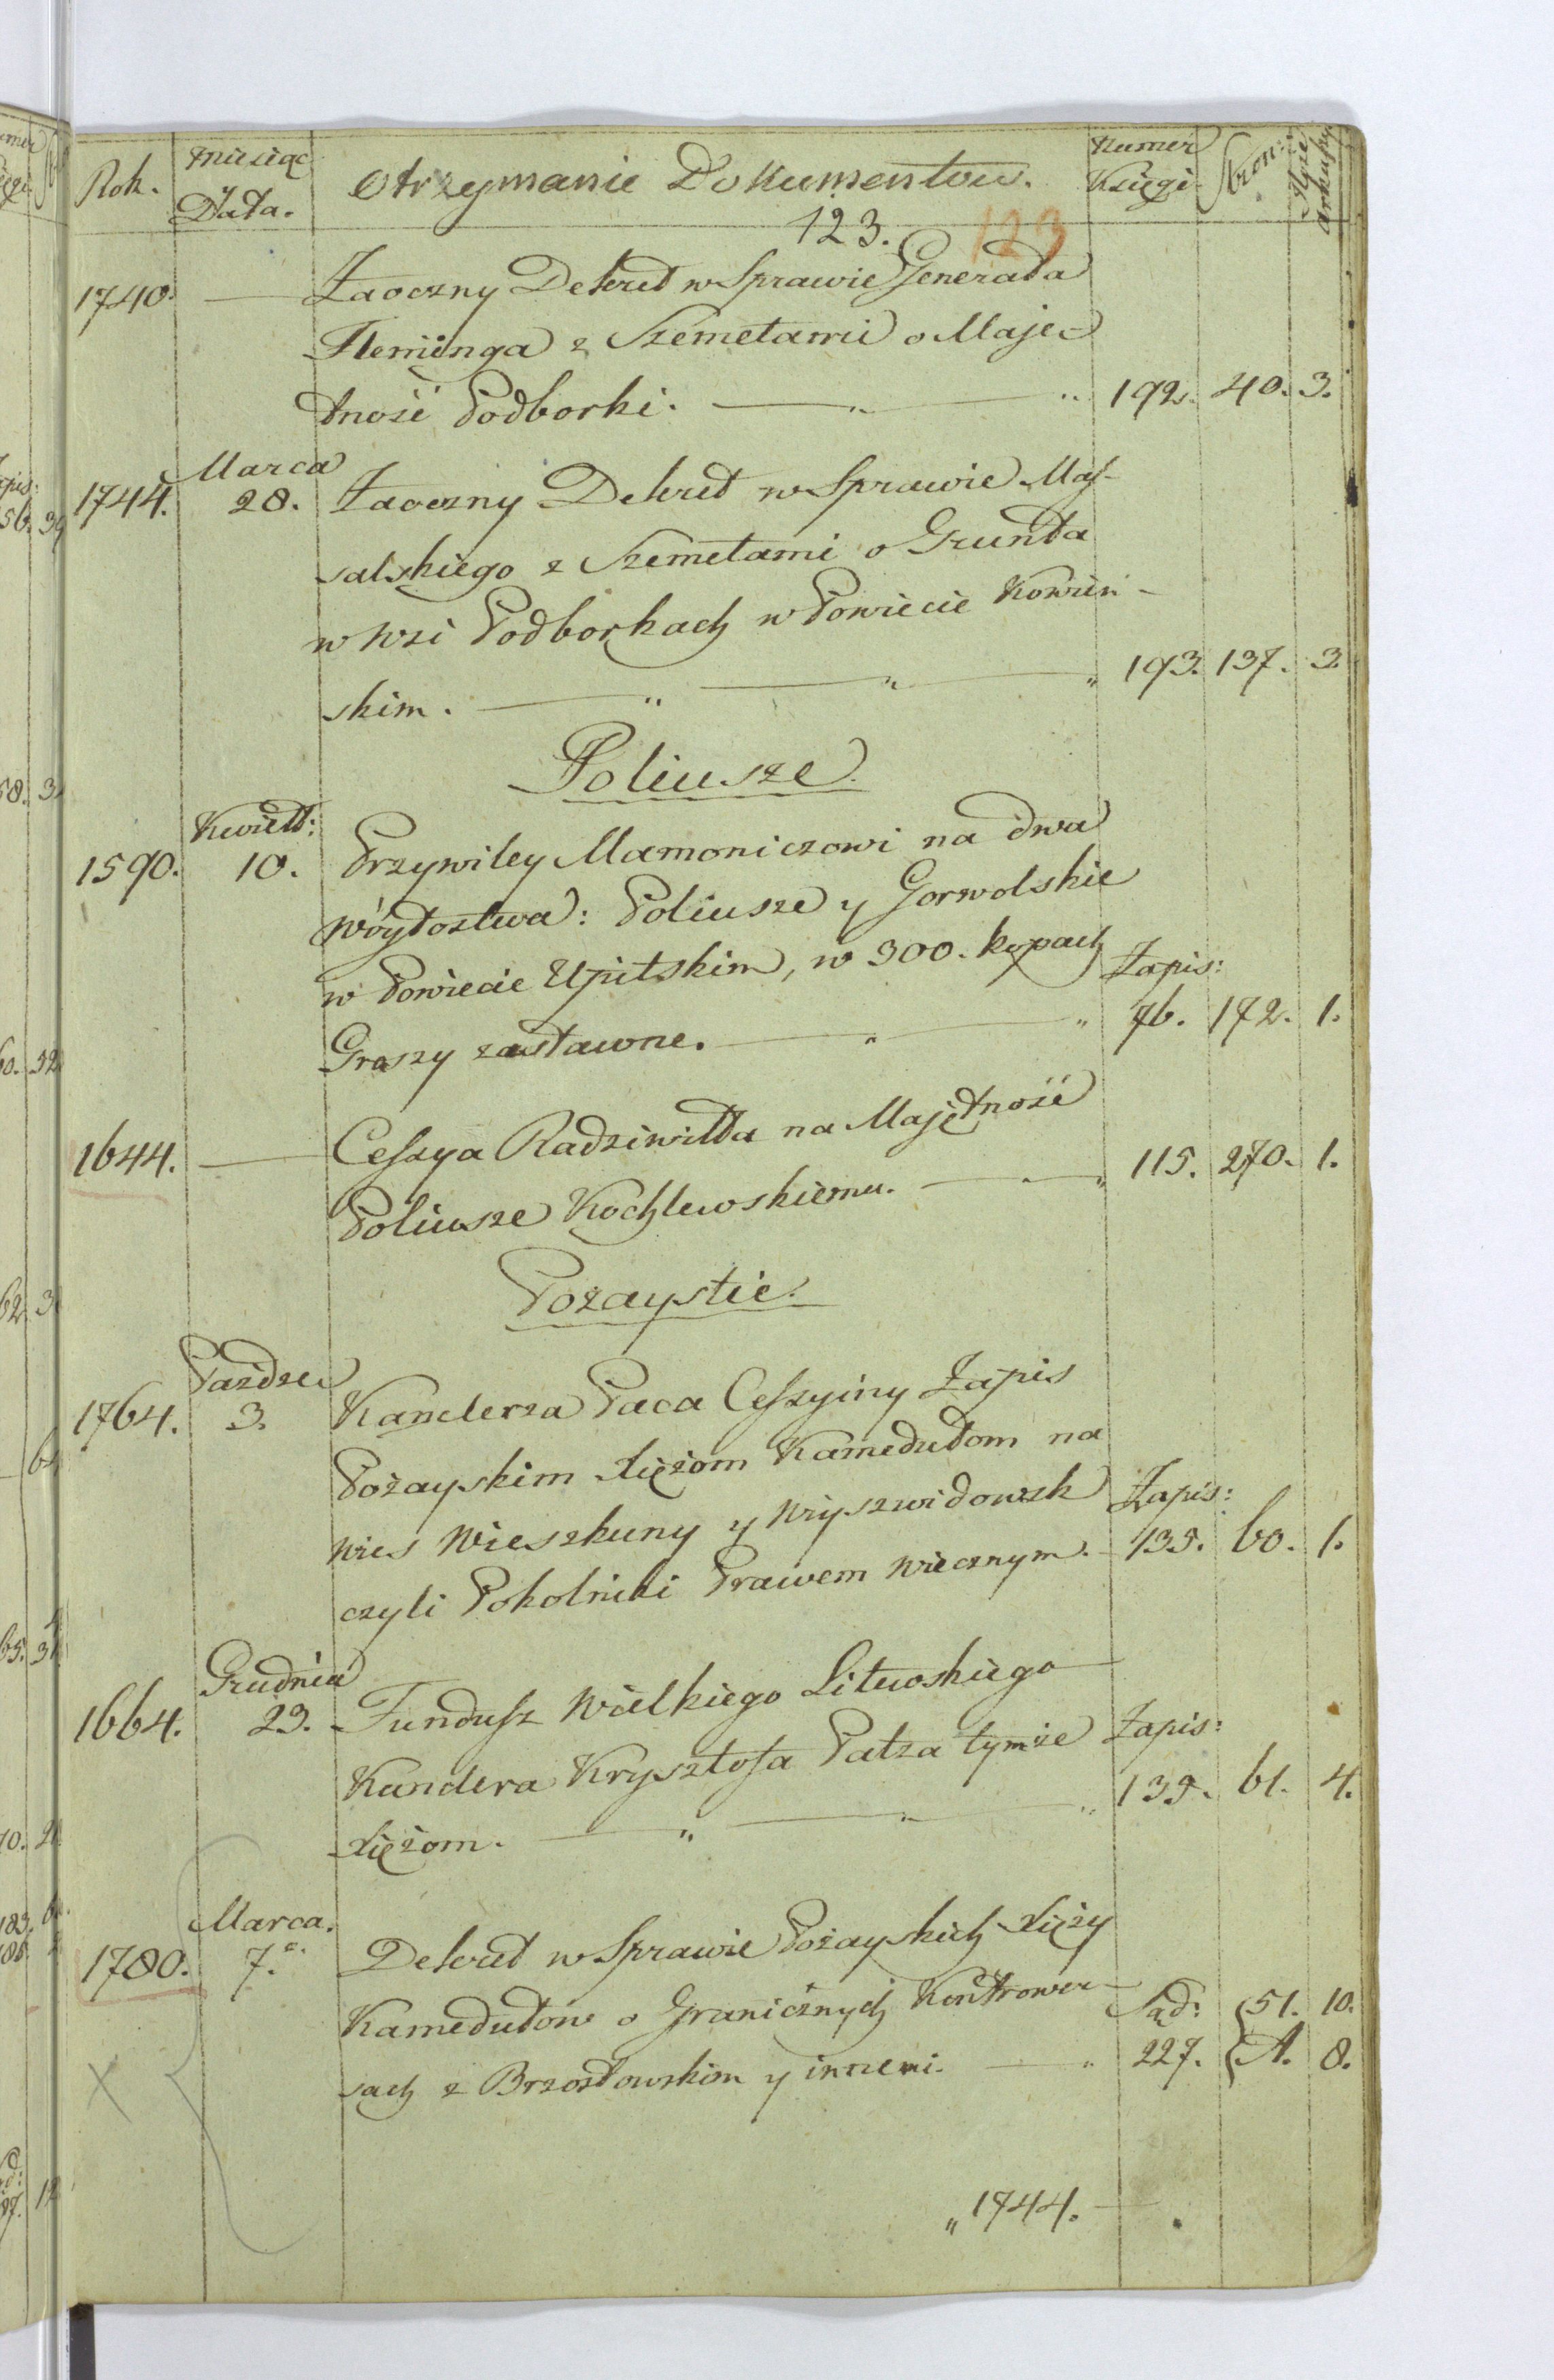 Rok. Miesiąc y Data. Otrzymanie Dokumentow. Numer Księgi Stron: Ilosć arkuszy
123. 123
1740. — Zaoczny Dekret w Sprawie Generała
Fleminga z Szemetami o Maję-
tność Podborki. — " — " 192. 40. 3.
Marca
1744. 28. Zaoczny Dekret w Sprawie Mas-
salskiego z Szemetami o Grunta
w Wsi Podborkach w Powiecie Kowień-
skim. — " — " — " 193. 137. 3.
Poliusze.
Kwiet:
1590. 10. Przywiley Mamoniczowi na dwa
Wóytostwa: Poliusze y Gorwolskie
w Powiecie Upitskim, w 300. kopach Zapis:
Groszy zastawne. — " — " 76. 172. 1.
1644. — Cessya Radziwiłła na Majętność
Poliusze Kochlewskiemu. — " 115. 270. 1.
Pożaystie.
Paźdze
1764. 3. Kanclerza Paca Cessyiny Zapis
Pożayskim xiężom Kamedułom na
wies Wieszkuny y Wyszwidowszk Zapis:
czyli Pokolniki Prawem Wiecznym. 135. 60. 1.
Grudnia
1664. 23. Fundusz Wielkiego Litwoskiego
Kanclera Krysztofa Patza tymże Zapis:
xiężom. — " — " — " 135. 61. 4.
Marca.
1780. 7. Dekret w Sprawie Pożayskich xięży
Kamedułów o Granicznych Kontrower-
Sąd: {51. 10.
sach z Brzostowskim y innemi. — " 227. {A. 8.
X
" 1744. —